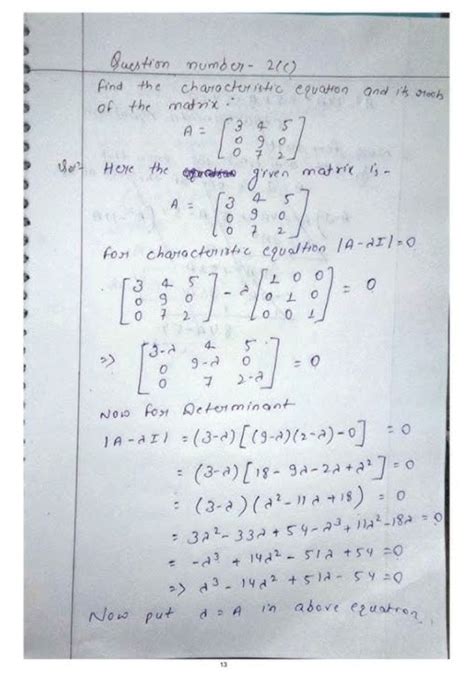 Question number - 2(c)
Find the characteristic equation and its roots
of the matrix :
A = [3 4 5
0 9 0
0 7 2]
Solⁿ Here the given matrix is -
A = [3 4 5
0 9 0
0 7 2]
For characteristic equaltion |A-λI|=0
[3 4 5
0 9 0
0 7 2] - λ [1 0 0
0 1 0
0 0 1] = 0
=> [3-λ 4 5
0 9-λ 0
0 7 2-λ] = 0
Now for Determinant
|A-λI| = (3-λ)[(9-λ)(2-λ)-0] = 0
= (3-λ)[18-9λ-2λ+λ²] = 0
= (3-λ)(λ²-11λ+18) = 0
= 3λ²-33λ+54-λ³+11λ²-18λ = 0
= -λ³+14λ²-51λ+54 = 0
=> λ³-14λ²+51λ-54 = 0
Now put λ = A in above equation,
13